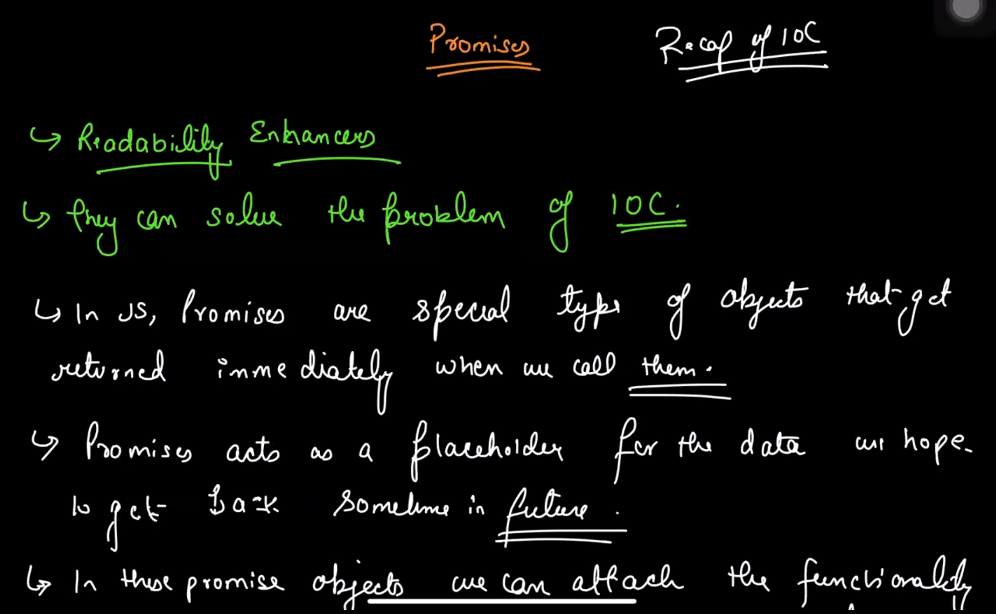 Promises Recap of IOC
↳ Readability Enhancers
↳ They can solve the problem of IOC.
↳ In JS, Promises are special type of objects that get
returned immediately when we call them.
↳ Promises acts as a placeholder for the data we hope
to get back sometime in future.
↳ In these promise objects we can attach the functionality